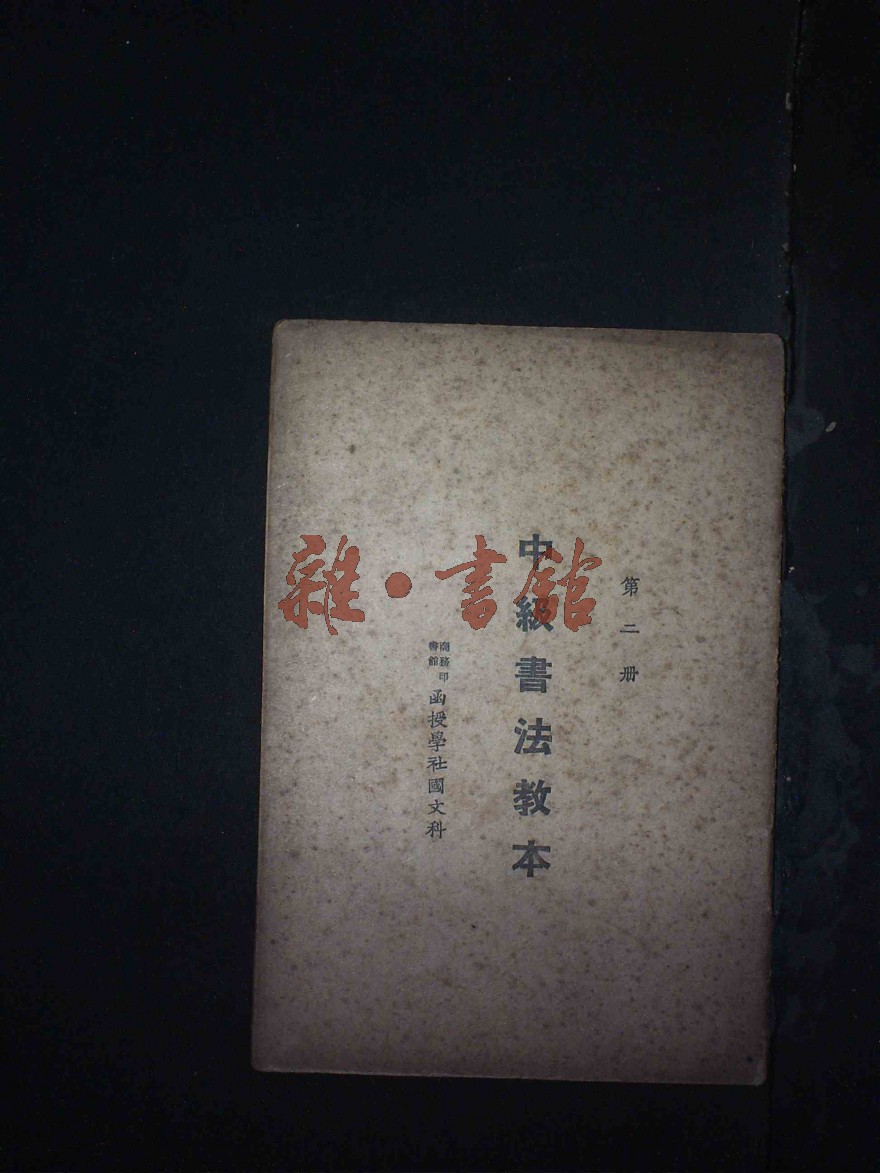 第二册
中級書法教本
商務印書館
函授學社國文科
雜·書館